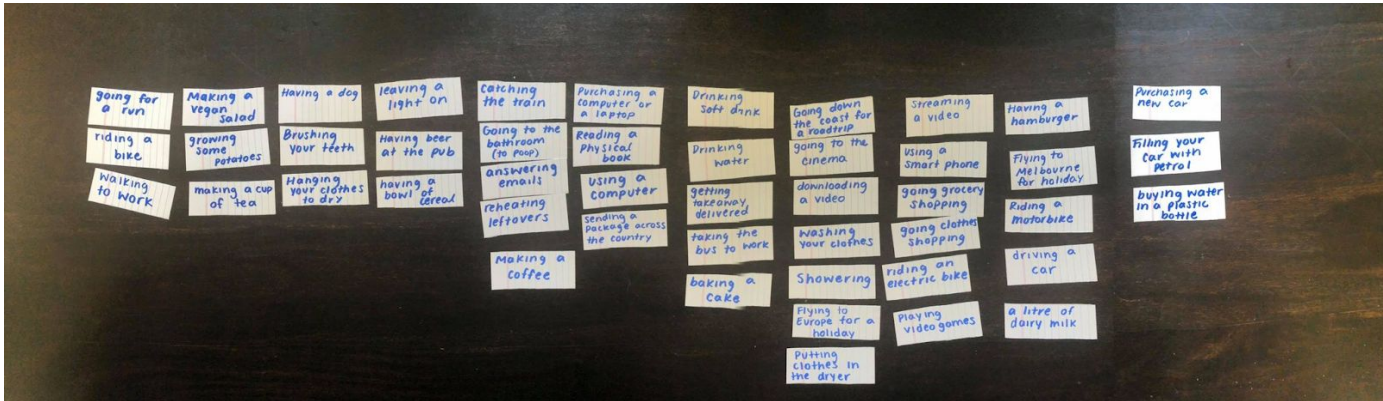 going for
a run
riding a
bike
Walking
to work
Making a
vegan
salad
growing
some
potatoes
making a cup
of tea
Having a dog
Brushing
your teeth
Hanging
your clothes
to dry
leaving a
light on
Having beer
at the pub
having a
bowl of
cereal
Catching
the train
Going to the
bathroom
(to poop)
answering
emails
reheating
leftovers
Making a
coffee
Purchasing a
computer or
a laptop
Reading a
Physical
book
using a
computer
sending a
package across
the country
Drinking
soft drink
Drinking
water
getting
takeaway
delivered
taking the
bus to work
baking a
cake
Going down
the coast for
a roadtrip
going to the
cinema
downloading
a video
washing
your clothes
Showering
Flying to
Europe for a
holiday
Putting
clothes in
the dryer
Streaming
a video
using a
smart phone
going grocery
shopping
going clothes
shopping
riding an
electric bike
Playing
video games
Having a
hamburger
Flying to
Melbourne
for holiday
Riding a
motorbike
driving a
car
a litre of
dairy milk
Purchasing a
new car
Filling your
car with
petrol
buying water
in a plastic
bottle